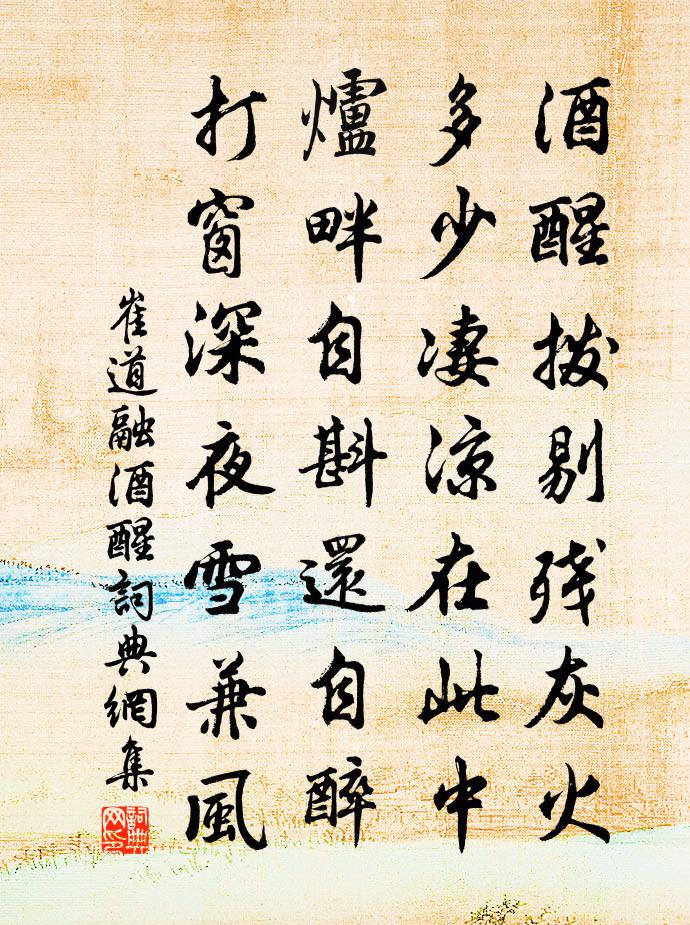 酒醒撥剔残灰火
多少凄涼在此中
爐畔自斟還自醉
打窗深夜雪兼風
崔道融酒醒詞典網集
詞典網印